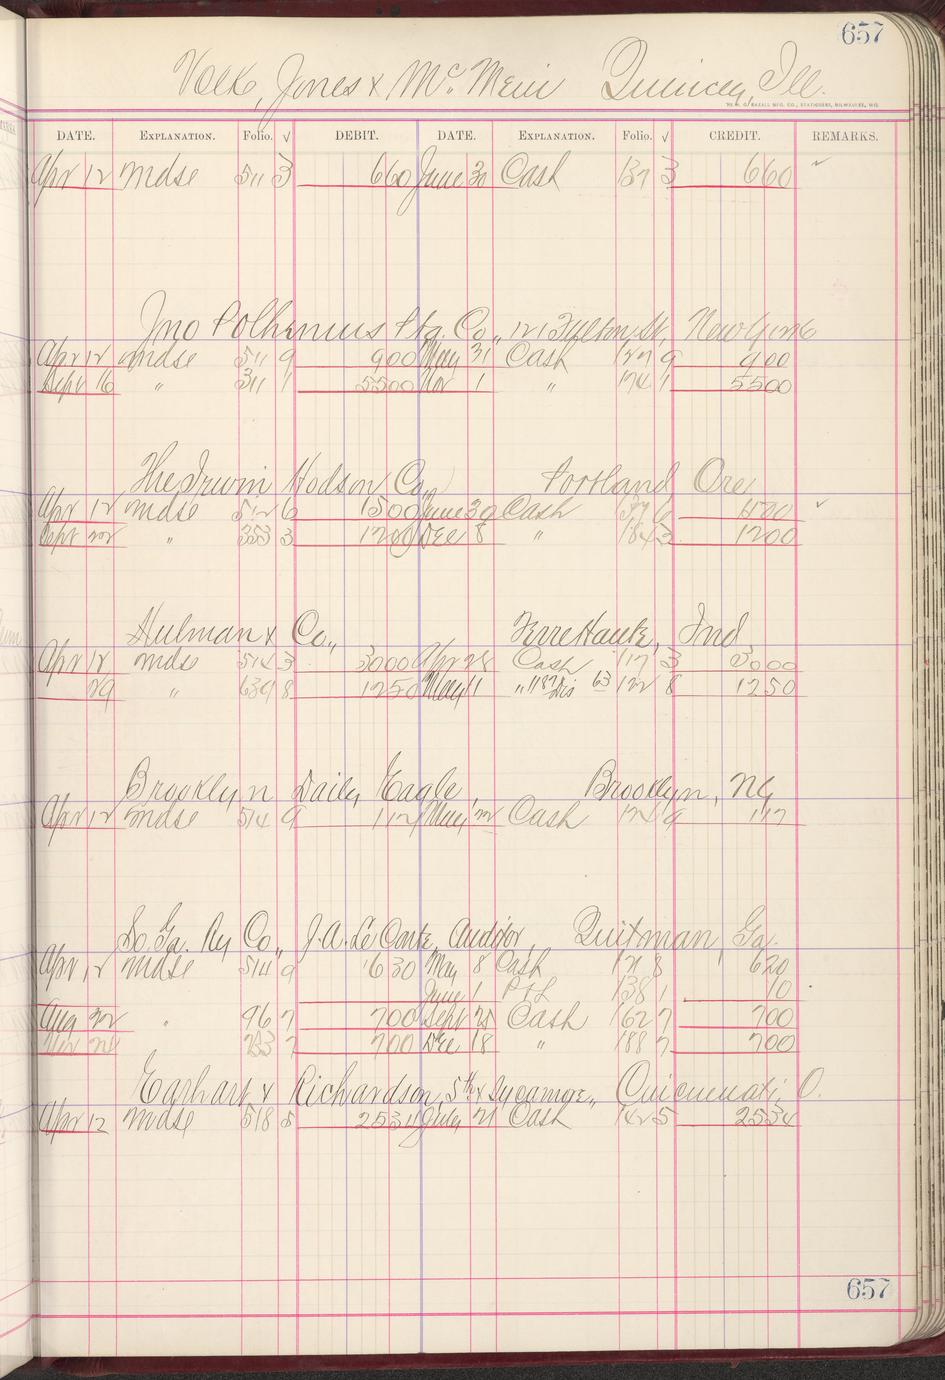 657
Volk, Jones & McMein Quincy, Ill.
THE H. G. RAZALL MFG. CO., STATIONERS, MILWAUKEE, WIS.
DATE. EXPLANATION. Folio. √ DEBIT. DATE. EXPLANATION. Folio. √ CREDIT. REMARKS.
Apr 12 mdse 511 3 660 June 30 Cash 137 3 660 ✓
Jno Polhemus Ptg. Co., 121 Fulton St, New York
Apr 12 mdse 511 9 900 May 31 Cash 127 9 900
Sept 16 " 311 1 5500 Nov 1 " 174 1 5500
The Irwin Hodson Co., Portland Ore
Apr 12 mdse 512 6 1500 June 30 Cash 6 1500 ✓
Sept 22 " 353 3 1200 Dec 8 " 184 3 1200
Hulman & Co., Terre Haute, Ind
Apr 12 mdse 514 3 3000 Apr 28 Cash 117 3 3000
29 " 639 8 1250 May 11 " 1187 Dis 63 122 8 1250
Brooklyn Daily Eagle, Brooklyn, NY
Apr 12 mdse 514 9 117 May 22 Cash 9 117
So. Ga. Ry Co., J.A. Le Conte, Auditor, Quitman, Ga.
Apr 12 mdse 514 9 630 May 8 Cash 121 8 620
June 1 P&L 138 1 10
Aug 22 " 96 7 700 Sept 25 Cash 162 7 700
Nov 7 700 Dec 18 " 188 7 700
Earhart & Richardson, 5th & Sycamore, Cincinnati, O.
Apr 12 mdse 518 5 2534 July 21 Cash 142 5 2534
657